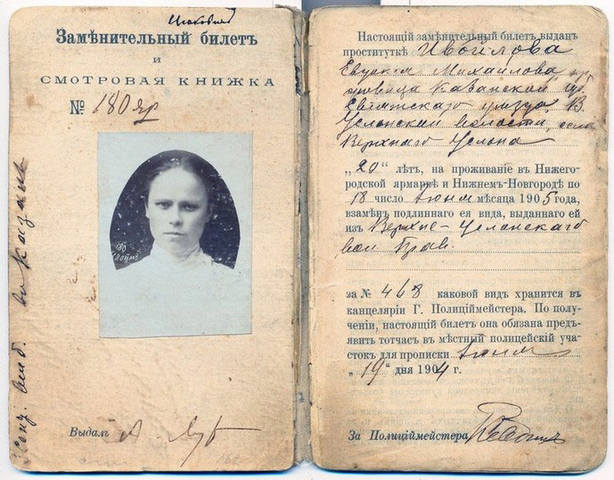 Замѣнительный билетъ
и
СМОТРОВАЯ КНИЖКА
№ 180 яр
Выдалъ
Настоящій замѣнительный билетъ выданъ
проституткѣ Ивойлова
Евдокія Михайлова
Казанской губ.
уѣзда, В.
Услонской волости, села
Верхнаго Услона
„20“ лѣтъ, на проживаніе въ Нижего-
родской ярмаркѣ и Нижнемъ-Новгородѣ по
18 число Іюня мѣсяца 1905 года,
взамѣнъ подлиннаго ея вида, выданнаго ей
изъ Верхне-Услонскаго
вол Прав.
за № 463 каковой видъ хранится въ
канцеляріи Г. Полиціймейстера. По полу-
ченіи, настоящій билетъ она обязана предъ-
явить тотчасъ въ мѣстный полицейскій уча-
стокъ для прописки Іюня
„19“ дня 1904 г.
За Полиціймейстера